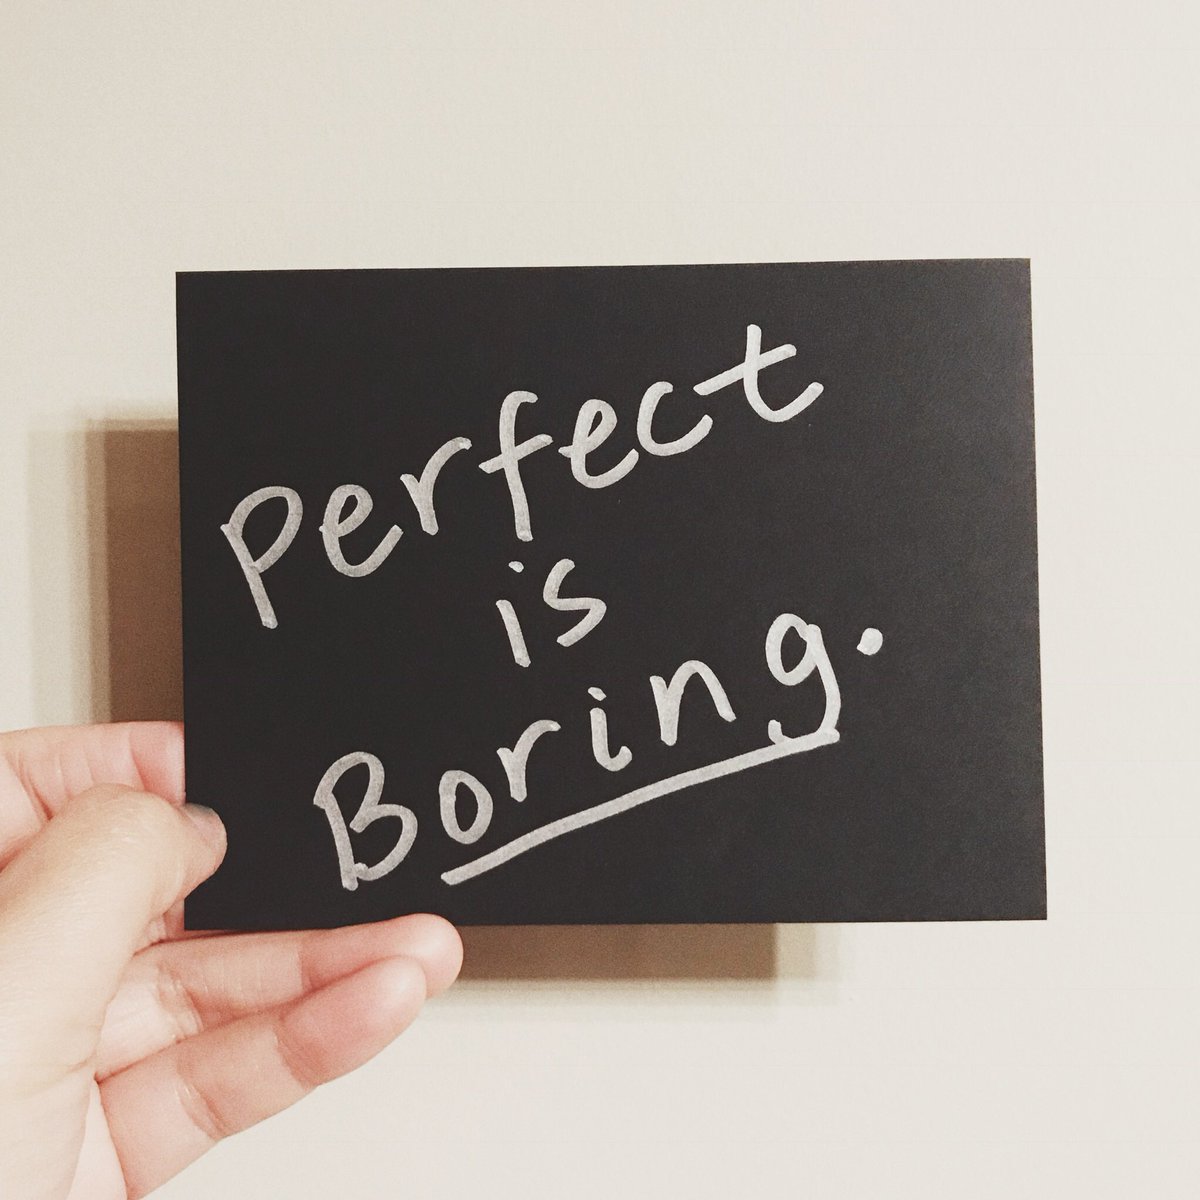 Perfect
is
Boring.